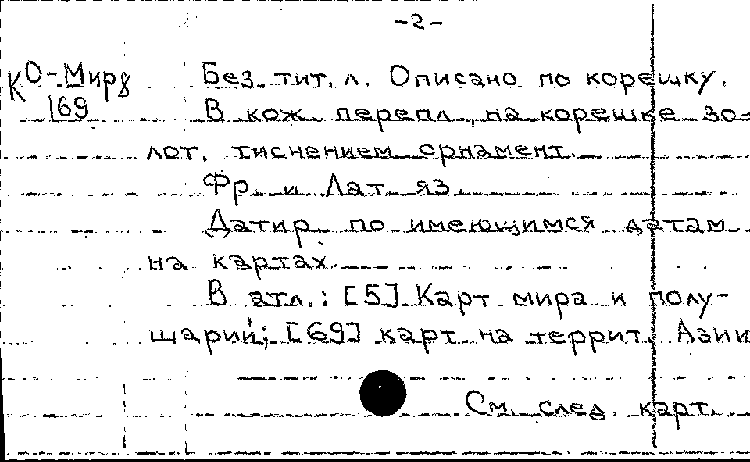 -2-
КО-Мир8 Без тит. л. Описано по корешку.
169 В кож. перепл., на корешке зо-
лот. тиснением орнамент.
Фр. и Лат. яз.
Датир. по имеющимся датам
на картах.
В атл.: [5] Карт мира и полу-
шарий; [69] карт на террит. Азии
См. след. карт.